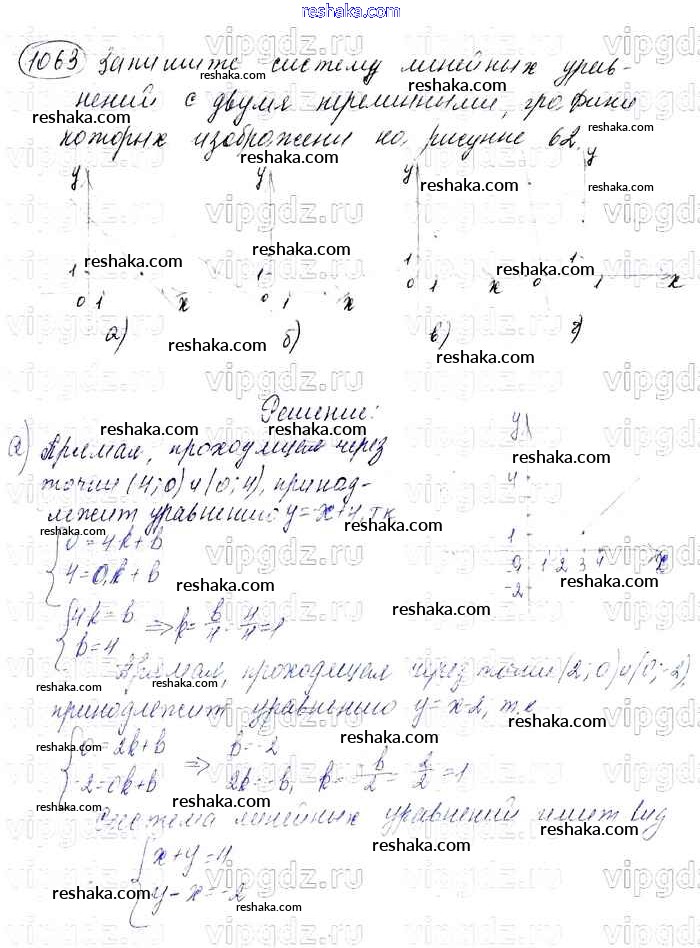 reshaka.com
1063 Запишите систему линейных урав-
нений с двумя переменными, графики
которых изображены на рисунке 62.
y y y y
1 1 1 1
0 1 x 0 1 x 0 1 x 0 1 x
а) б) в) г)
Решение:
а) Прямая, проходящая через
точки (4;0) и (0;4), принад-
лежит уравнению y=-x+4, т.к
0=4k+b
4=0k+b
4k=b
b=4 => k=
Прямая, проходящая через точки (2;0) и (0;-2),
принадлежит уравнению y=x-2, т.к
0=2k+b => b=-2
-2=0k+b 2k=-b, k=-b/2=2/2=1
Система линейных уравнений имит вид
x+y=4
y-x=-2
y
4
1
0 1 2 3 4 x
-2
vipgdz.ru
reshaka.com